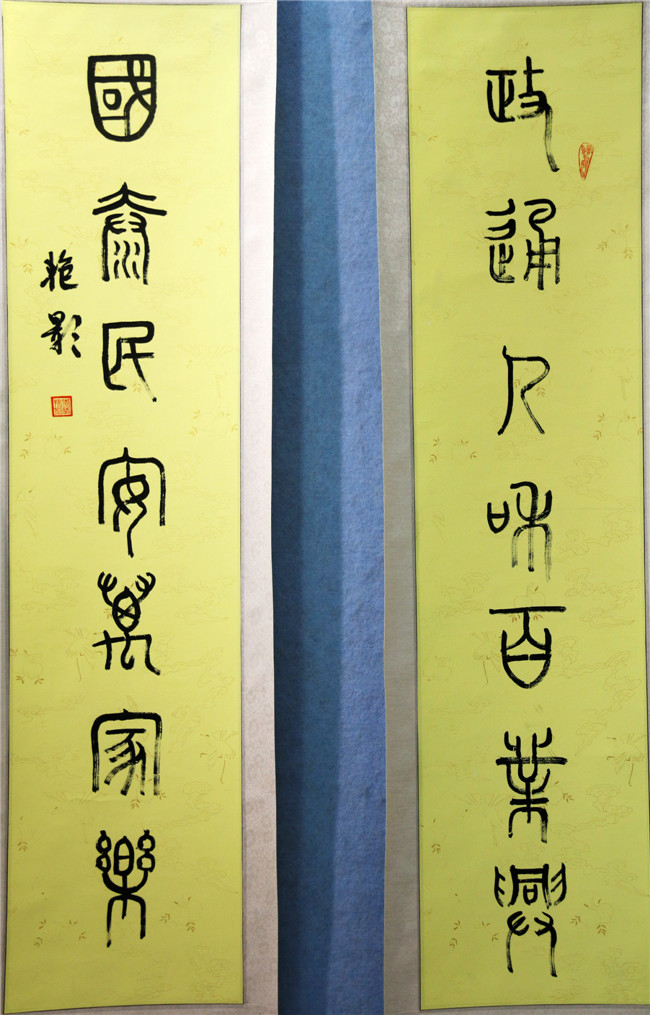 政通人和百業興
國泰民安萬家樂
艳影